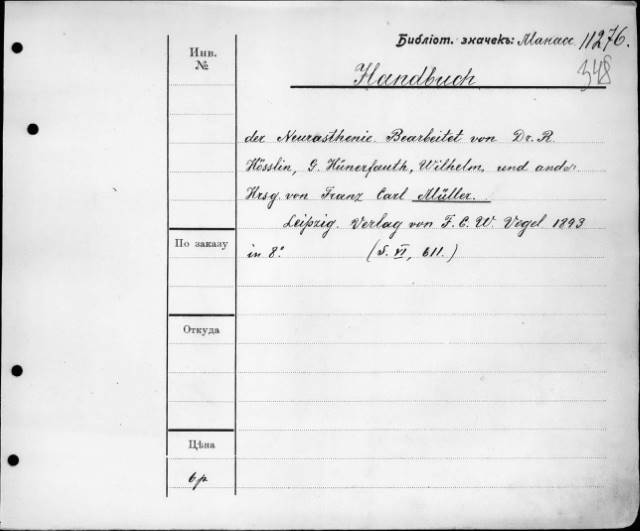 Библіот. значекъ: Манасс 11276.
348
Инв.
№
Handbuch
der Neurasthenie. Bearbeitet von Dr. R.
Hösslin, G. Hünerfauth, Wilhelm, und ander.
Hrsg. von Franz Carl Müller.
Leipzig. Verlag von F. C. W. Vogel 1893
in 8º. (S. VI, 611.)
По заказу
Откуда
Цѣна
6 р